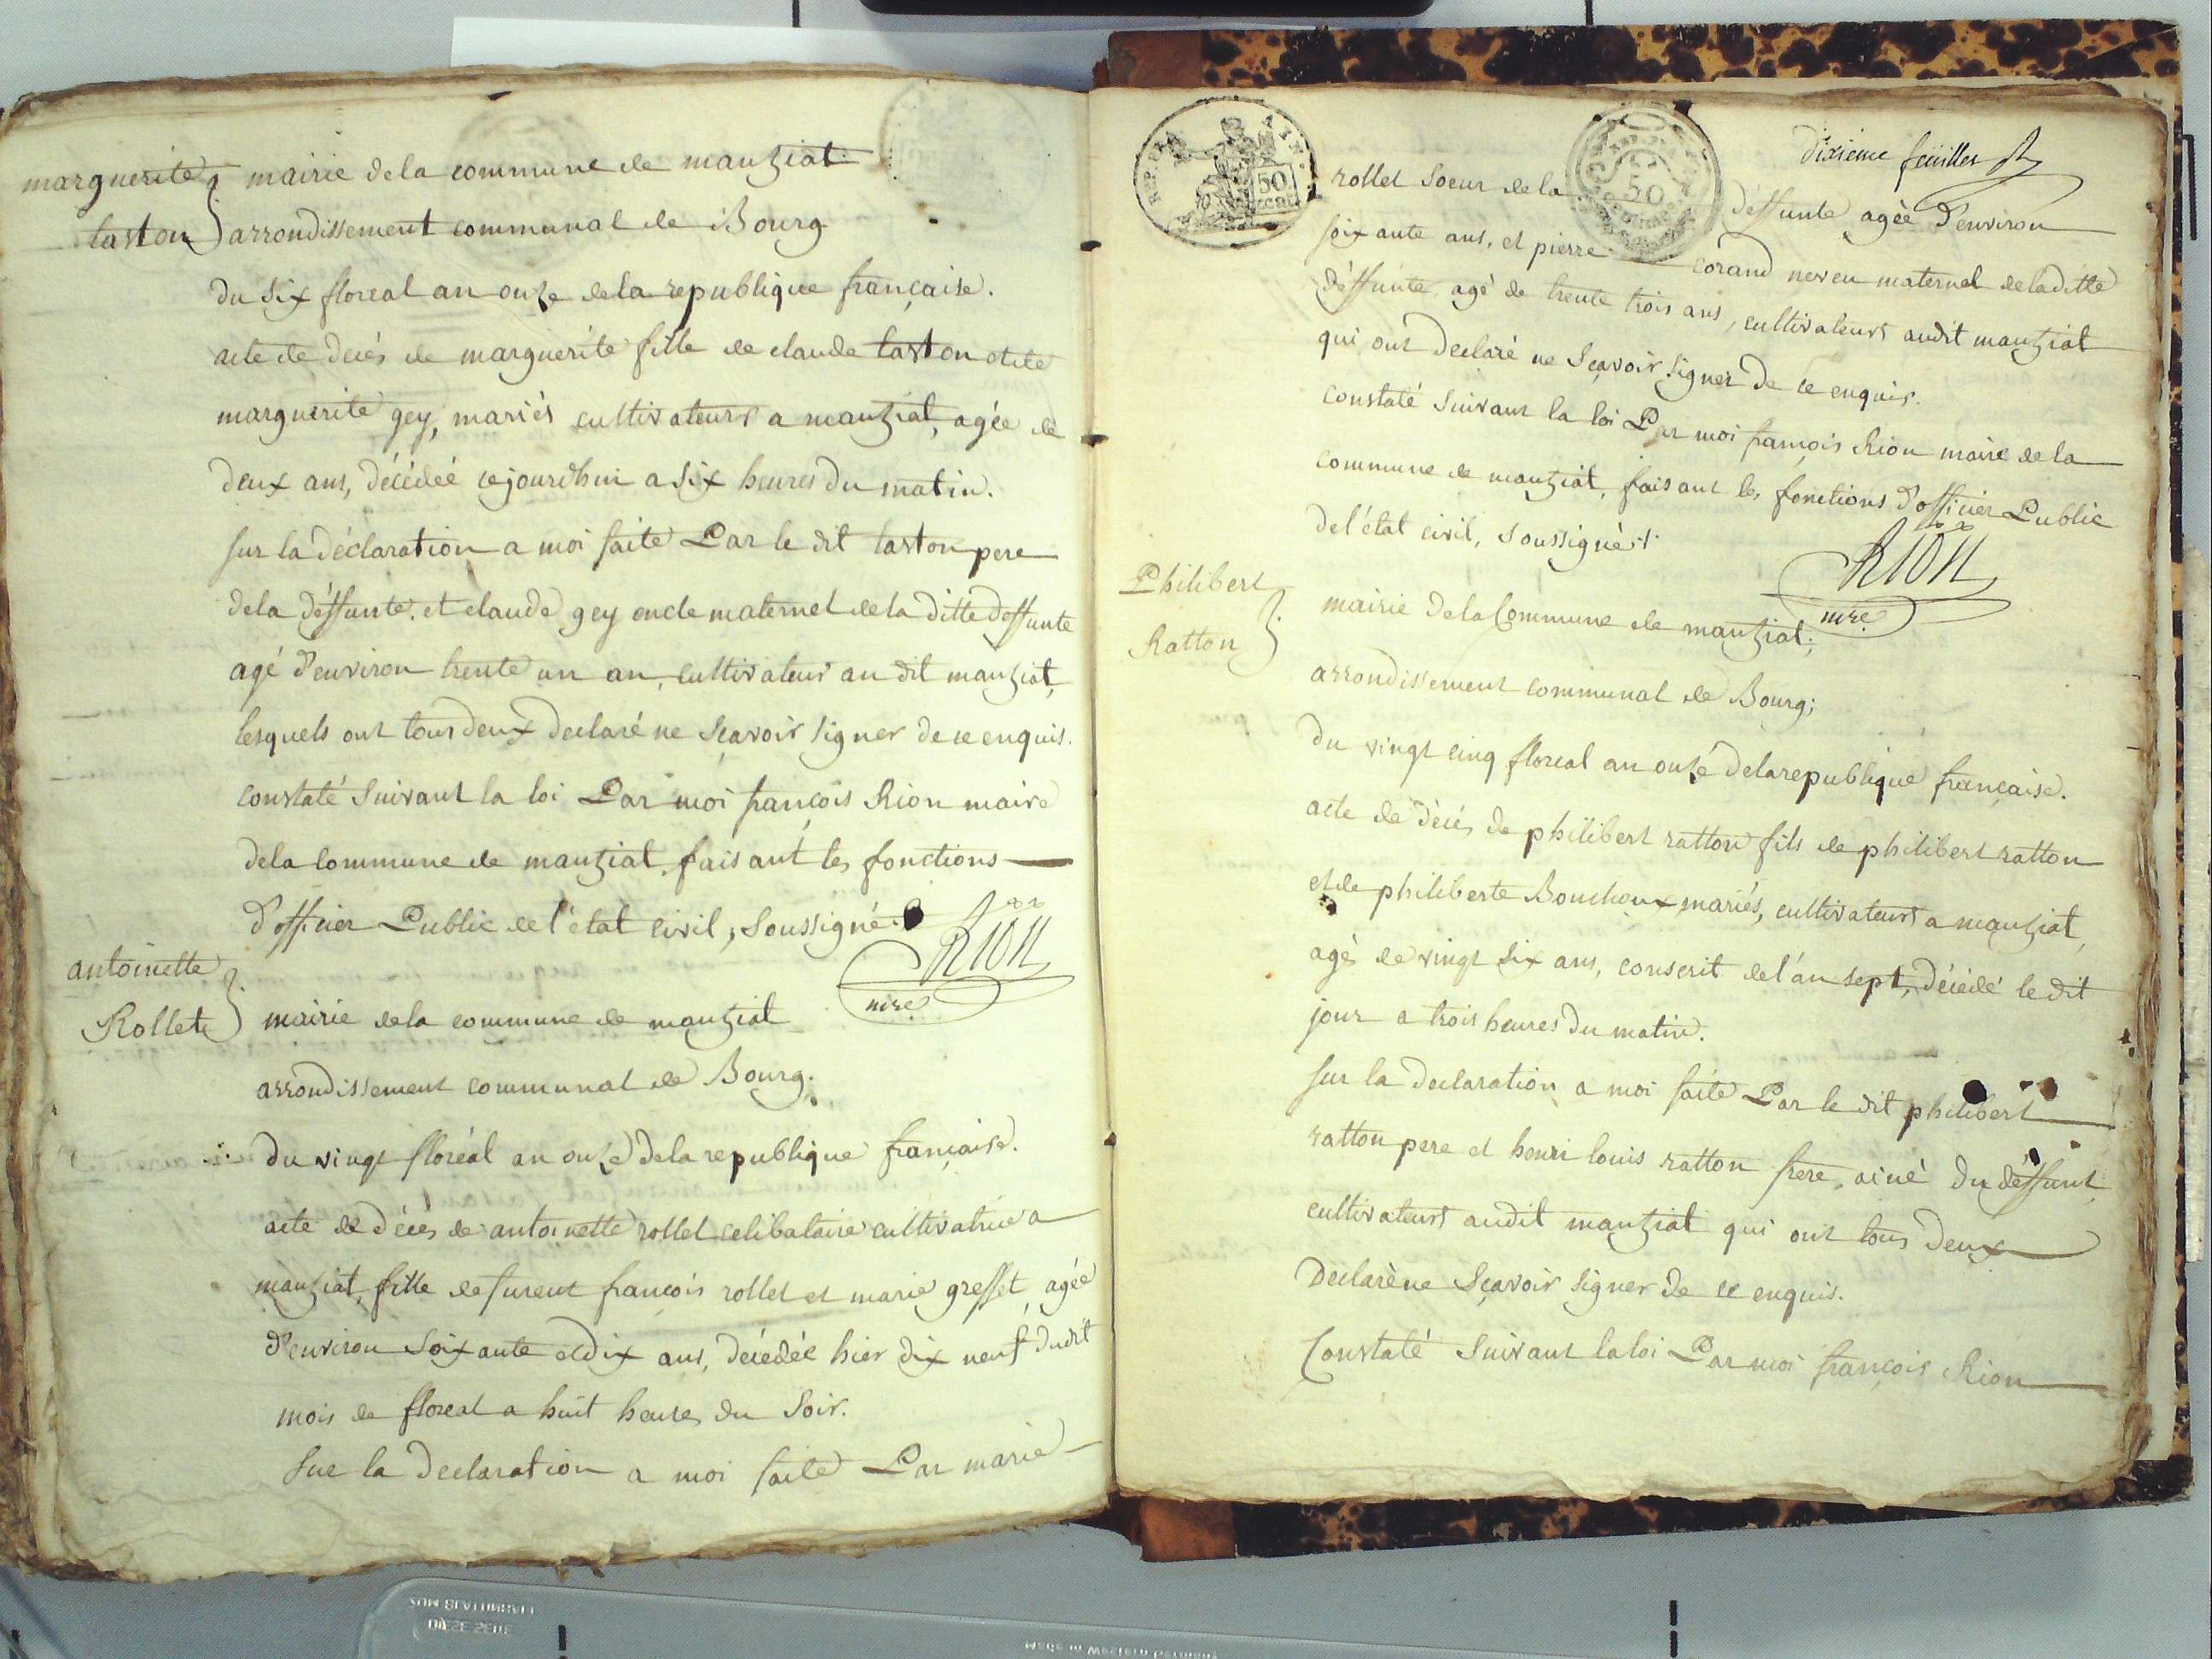 marguerite
taston
mairie de la commune de manziat
arrondissement communal de Bourg
du six floreal an onze de la republique française.
acte de decés de marguerite fille de claude taston et de
marguerite gey, mariés cultivateurs a manziat, agée de
deux ans, décédée cejourdhui a six heures du matin.
sur la déclaration a moi faite Par le dit taston pere
de la déffunte, et claude gey oncle maternel de la ditte deffunte
agé d'environ trente un an, cultivateur au dit manziat,
lesquels ont tous deux declaré ne sçavoir signer de ce enquis.
constaté suivant la loi Par moi françois Rion maire
de la commune de manziat, faisant les fonctions
d'officier Public de l'état civil, soussigné
Rion
mre
antoinette
Rollet
mairie de la commune de manziat
arrondissement communal de Bourg.
du vingt floréal an onze de la republique française.
acte de décés de antoinette rollet celibataire cultivatrice a
manziat, fille de furent françois rollet et marie greffet, agée
d'environ soixante et dix ans, décédée hier dix neuf dudit
mois de floreal a huit heures du soir.
sur la declaration a moi faite Par marie
dixieme feuillet
REP. FRA.
50
CENT
50
rollet soeur de la déffunte agée d'environ
soixante ans, et pierre corand neveu maternel de la ditte
déffunte agé de trente trois ans, cultivateurs audit manziat
qui ont declaré ne sçavoir signer de ce enquis.
constaté suivant la loi Par moi françois Rion maire de la
commune de manziat, faisant les fonctions d'officier Public
de l'état civil, soussigné.
Rion
mre
Philibert
Ratton
mairie de la Commune de manziat;
arrondissement communal de Bourg;
du vingt cinq floreal an onze de la republique française.
acte de décés de philibert ratton fils de philibert ratton
et de philiberte Bouchoux mariés, cultivateurs a manziat,
agé de vingt six ans, conscrit de l'an sept, décédé le dit
jour a trois heures du matin.
sur la declaration a moi faite Par le dit philibert
ratton pere et henri louis ratton frere, ainé du déffunt
cultivateurs audit manziat qui ont tous deux
declaré ne sçavoir signer de ce enquis.
Constaté suivant la loi Par moi françois Rion
Made in Western Germany